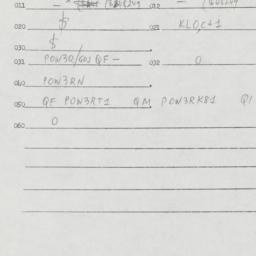 011 - 012 -
020 $ 021 KLO,C+1
030 $
031 POW3Q/GOJ QF - 032 O
040 POW3RN
050 QF POW3RT1 QM POW3RK81 Q1
060 O